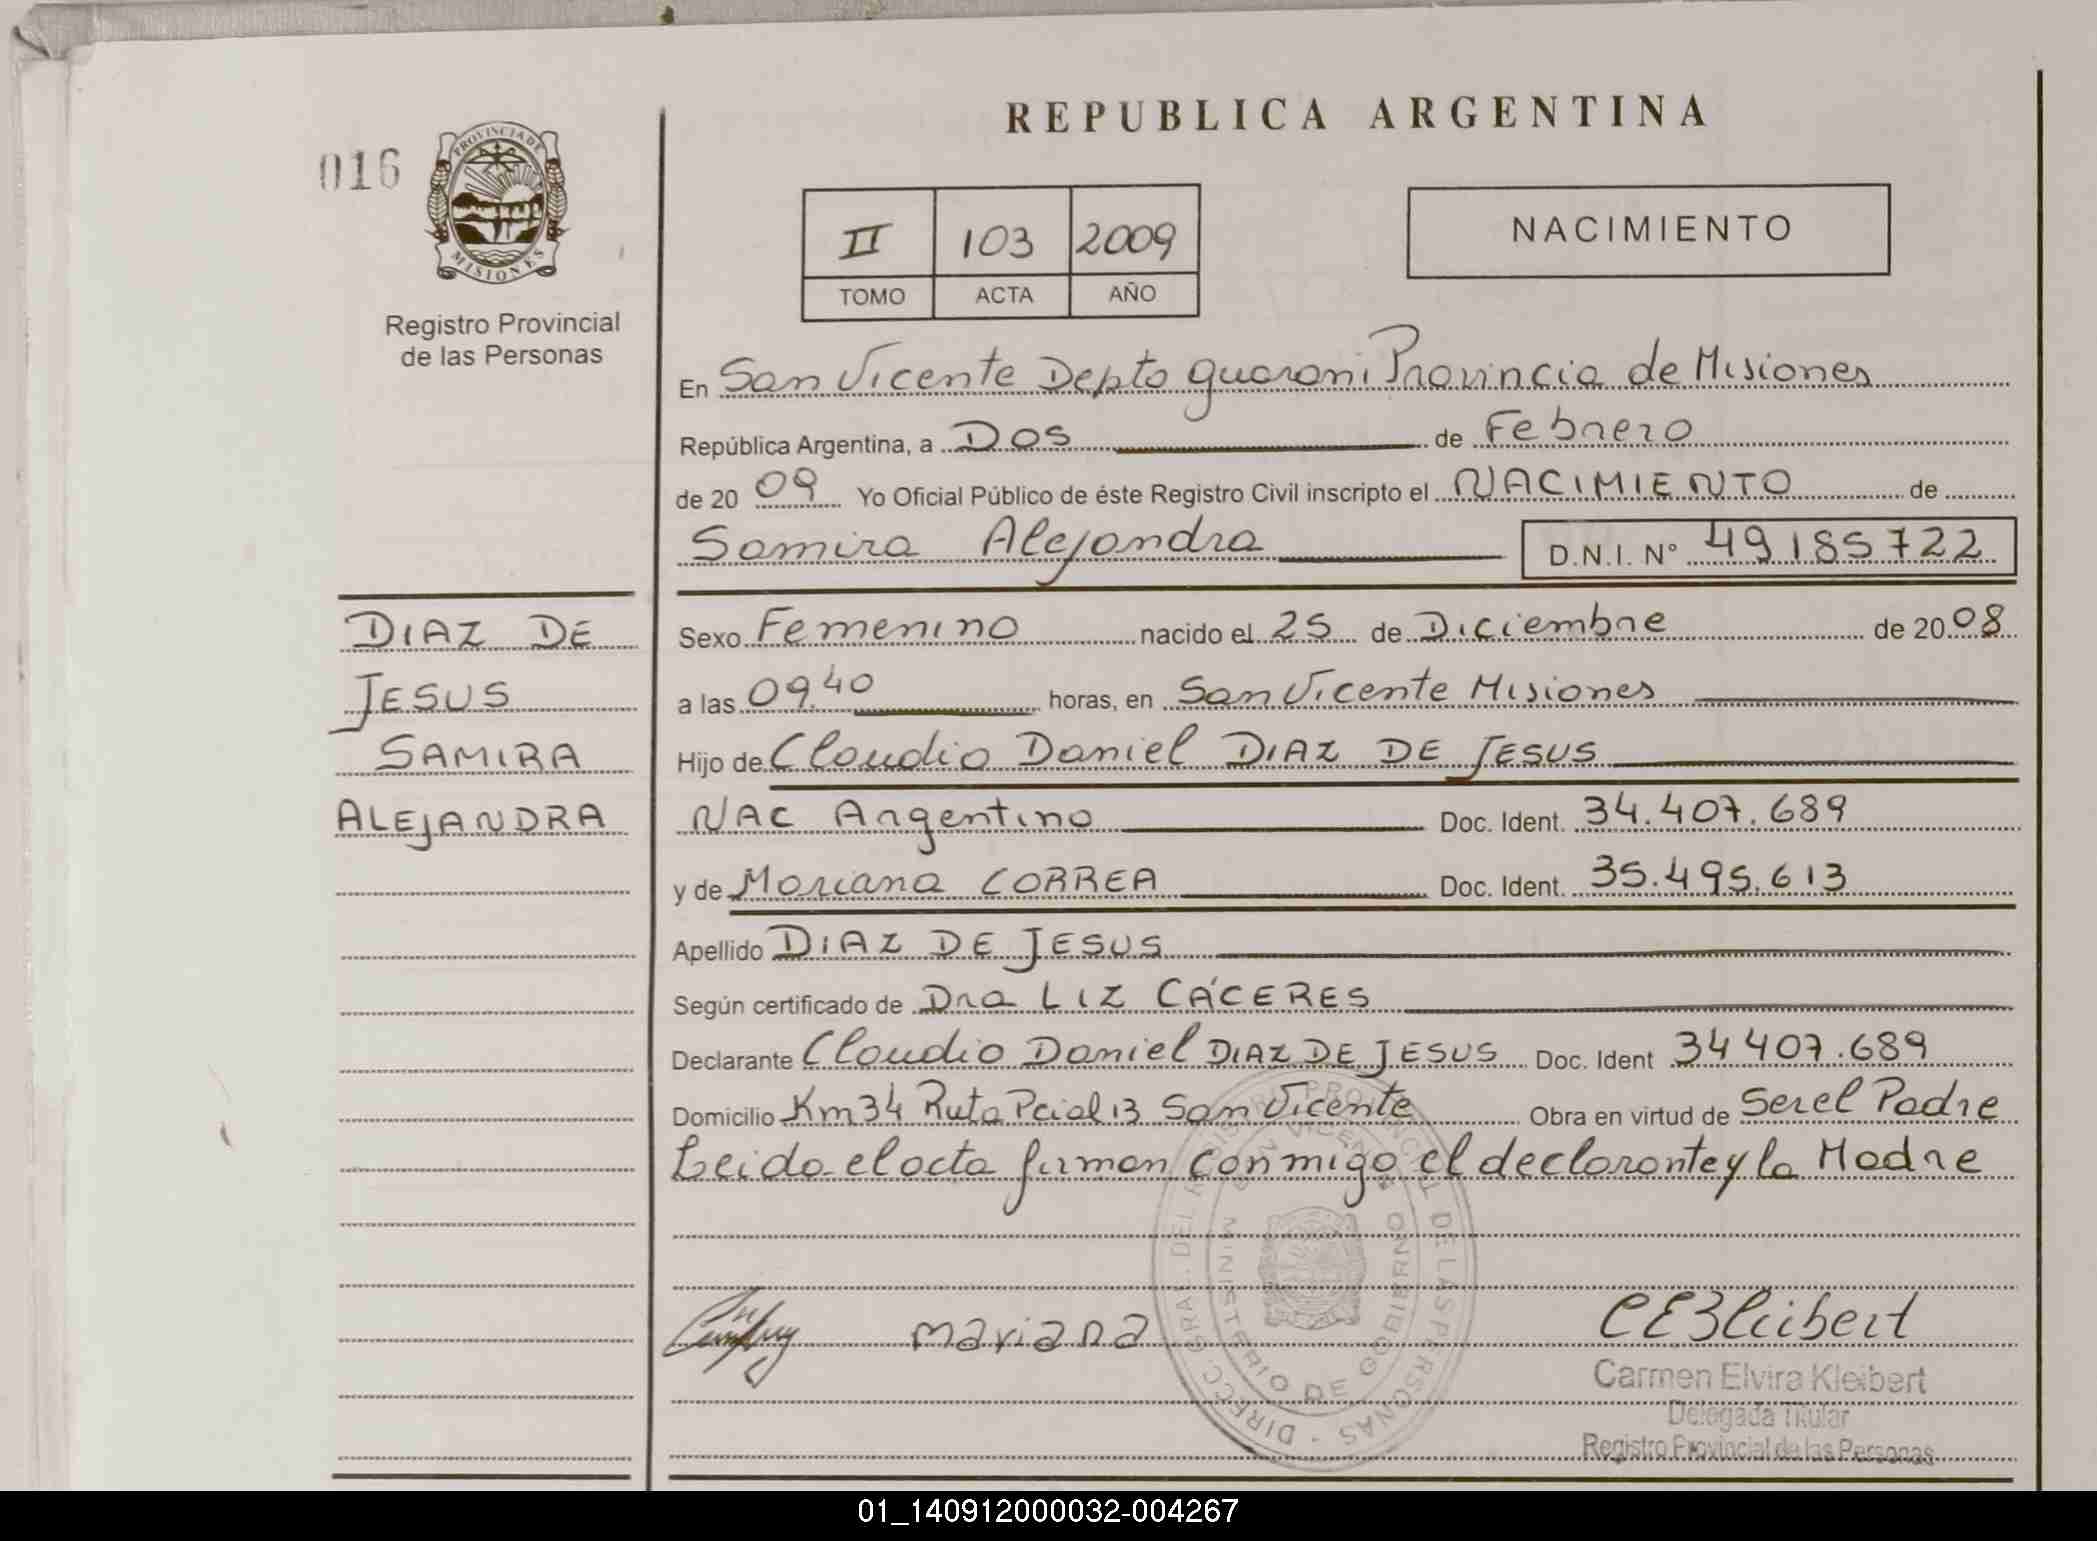 REPUBLICA ARGENTINA
016
PROVINCIA DE
MISIONES
Registro Provincial
de las Personas
II 103 2009
TOMO ACTA AÑO
NACIMIENTO
En San Vicente Depto guarani Provincia de Misiones
República Argentina, a Dos de Febrero
de 20 09 Yo Oficial Público de éste Registro Civil inscripto el NACIMIENTO de
Samira Alejandra D.N.I. N° 49.185.722
DIAZ DE
JESUS
SAMIRA
ALEJANDRA
Sexo Femenino nacido el 25 de Diciembre de 20 08
a las 09.40 horas, en San Vicente Misiones
Hijo de Claudio Daniel DIAZ DE JESUS
NAC Argentino Doc. Ident. 34.407.689
y de Mariana CORREA Doc. Ident. 35.495.613
Apellido DIAZ DE JESUS
Según certificado de Dra LIZ CÁCERES
Declarante Claudio Daniel DIAZ DE JESUS Doc. Ident 34 407.689
Domicilio Km34 Ruta Pcial 13 San Vicente Obra en virtud de Ser el Padre
Leida el acta firman conmigo el declarante y la Madre
DIRECC. GRAL. DEL REGISTRO PROVINCIAL DE LAS PERSONAS
MINISTERIO DE GOBIERNO
SAN VICENTE
mariana
CEKleibert
Carmen Elvira Kleibert
Delegada Titular
Registro Provincial de las Personas
01_140912000032-004267